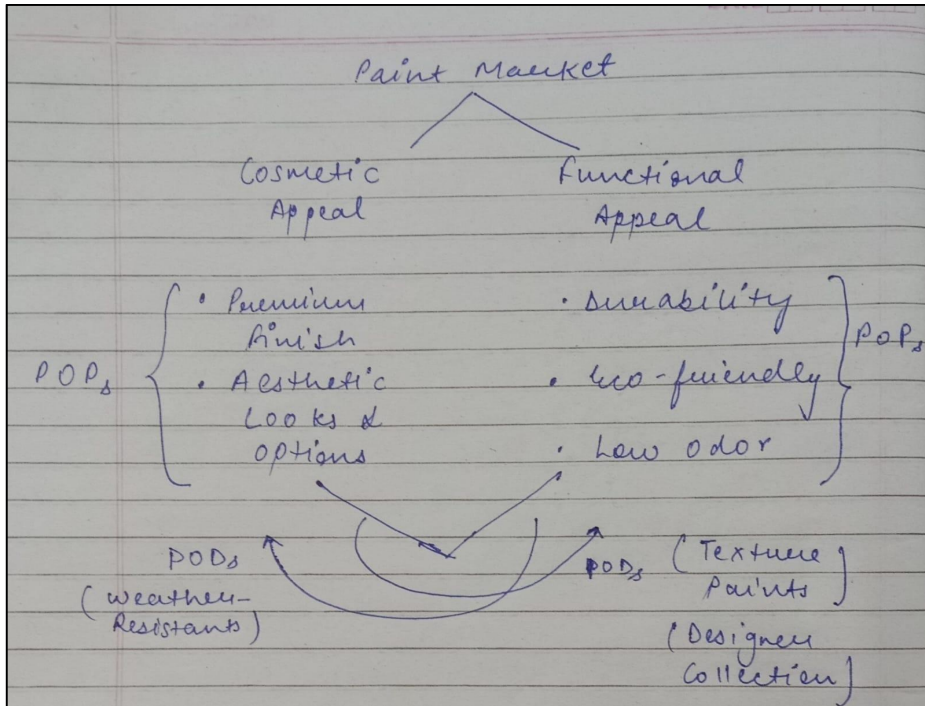 Paint Market
Cosmetic
Appeal
Functional
Appeal
POPs
• Premium
finish
• Aesthetic
Looks &
options
• Durability
• Eco-friendly
• Low odor
POPs
PODs
(Weather-
Resistants)
PODs (Texture
Paints)
(Designer
Collection)